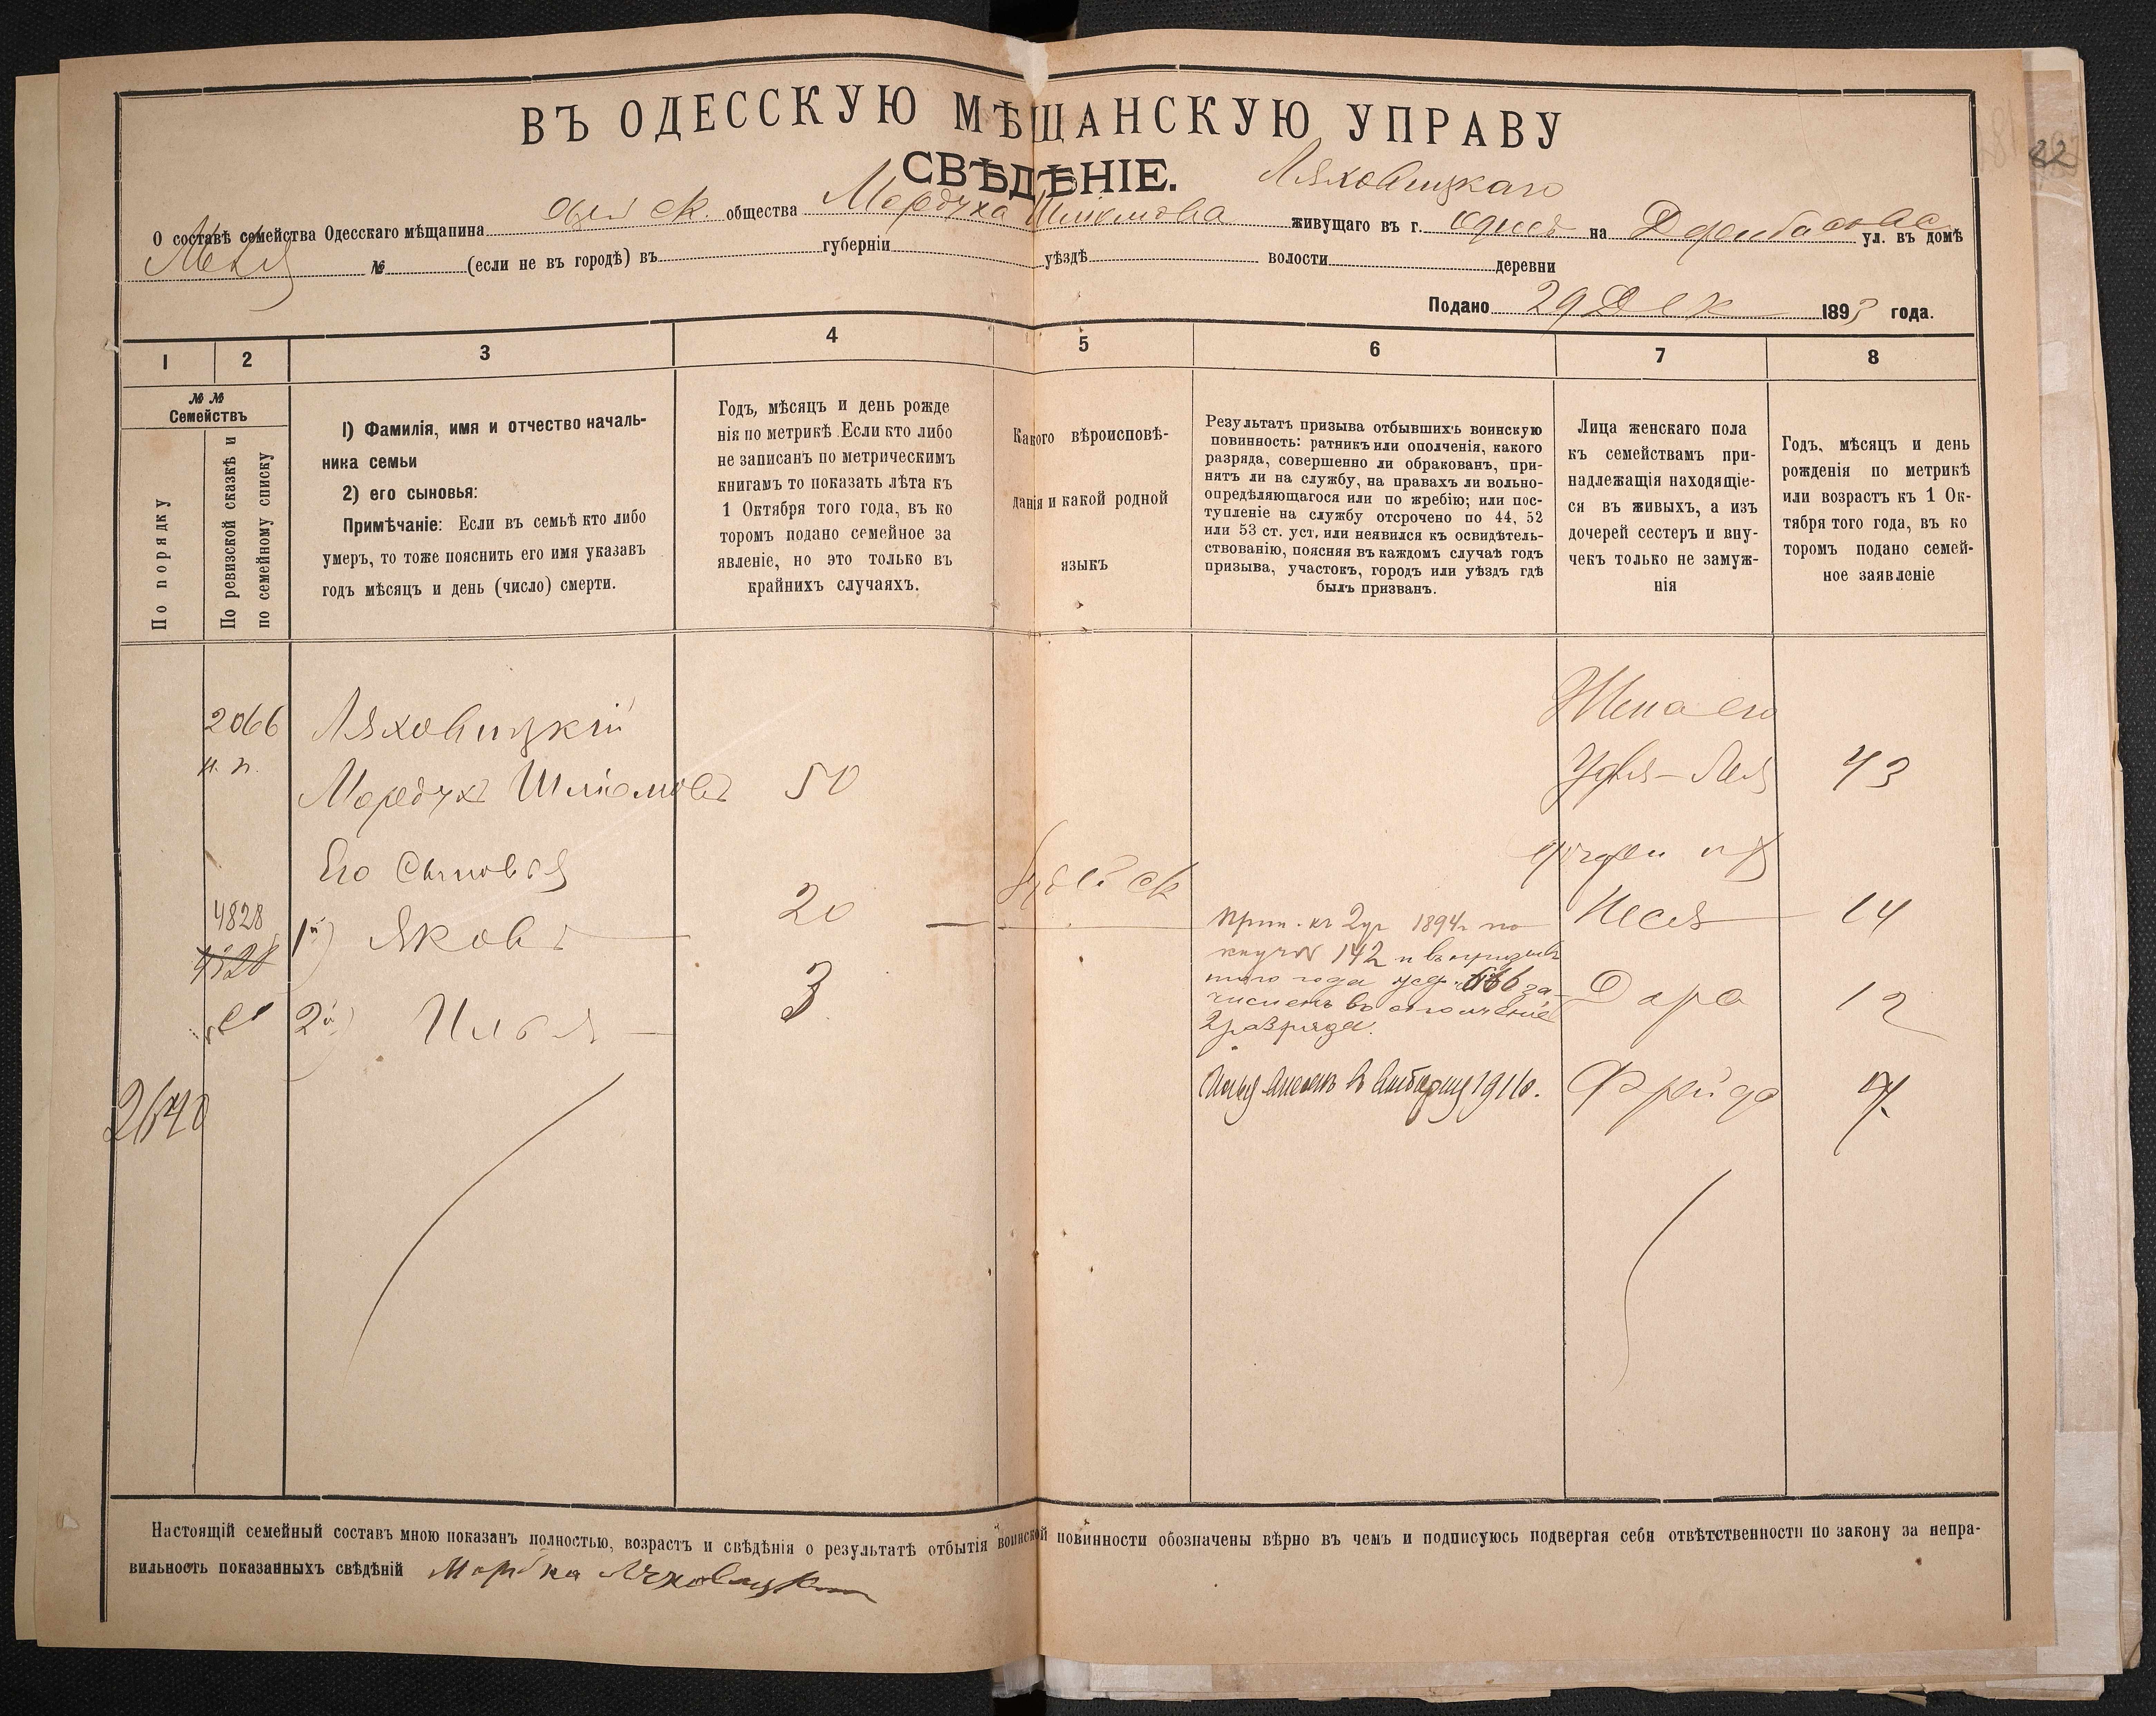 22
ВЪ ОДЕССКУЮ МѢЩАНСКУЮ УПРАВУ
СВѢДѢНІЕ.
Ляховицкаго
О составѣ семейства Одесскаго мѣщанина общества Мордуха Шліомова живущаго въ г. на Дерибасовс ул. въ домѣ
№ (если не въ городѣ) въ губерніи уѣздѣ волости деревни
Подано 29 Дек 1893 года.
1 2 3 4 5 6 7 8
№ № Семействъ
По порядку
По ревизской сказкѣ и
по семейному списку
1) Фамилія, имя и отчество началь-
ника семьи
2) его сыновья:
Примѣчаніе: Если въ семьѣ кто либо
умеръ, то тоже пояснить его имя указавъ
годъ мѣсяцъ и день (число) смерти.
Годъ, мѣсяцъ и день рожде
нія по метрикѣ. Если кто либо
не записанъ по метрическимъ
книгамъ то показать лѣта къ
1 Октября того года, въ ко
торомъ подано семейное за
явленіе, но это только въ
крайнихъ случаяхъ.
Какого вѣроисповѣ-
данія и какой родной
языкъ
Результатъ призыва отбывшихъ воинскую
повинность: ратникъ или ополченія, какого
разряда, совершенно ли обракованъ, при-
нятъ ли на службу, на правахъ ли вольно-
опредѣляющагося или по жребію; или пос-
тупленіе на службу отсрочено по 44, 52
или 53 ст. уст. или неявился къ освидѣтель-
ствованію, поясняя въ каждомъ случаѣ годъ
призыва, участокъ, городъ или уѣздъ гдѣ
былъ призванъ.
Лица женскаго пола
къ семействамъ при-
надлежащія находящіе-
ся въ живыхъ, а изъ
дочерей сестеръ и вну-
чекъ только не замуж-
нія
Годъ, мѣсяцъ и день
рожденія по метрикѣ
или возрастъ къ 1 Ок-
тября того года, въ ко
торомъ подано семей-
ное заявленіе
2066
н. п.
Ляховицкій
Мордухъ Шліомовъ 50
Жена его
Лея 43
Его Сыновья
4828
1й) Яковъ 20
Еврейск
прип. къ 2 уч 1894 г. по
142 и въ призывъ
того года за-
численъ въ ополченіе
2 разряда.
Песя 14
2й) Илья 3
Дара 12
2640
1916.
Фрейда 7
Настоящій семейный составъ мною показанъ полностью, возрастъ и свѣдѣнія о результатѣ отбытія воинской повинности обозначены вѣрно въ чемъ и подписуюсь подвергая себя отвѣтственности по закону за непра-
вильность показанныхъ свѣдѣній